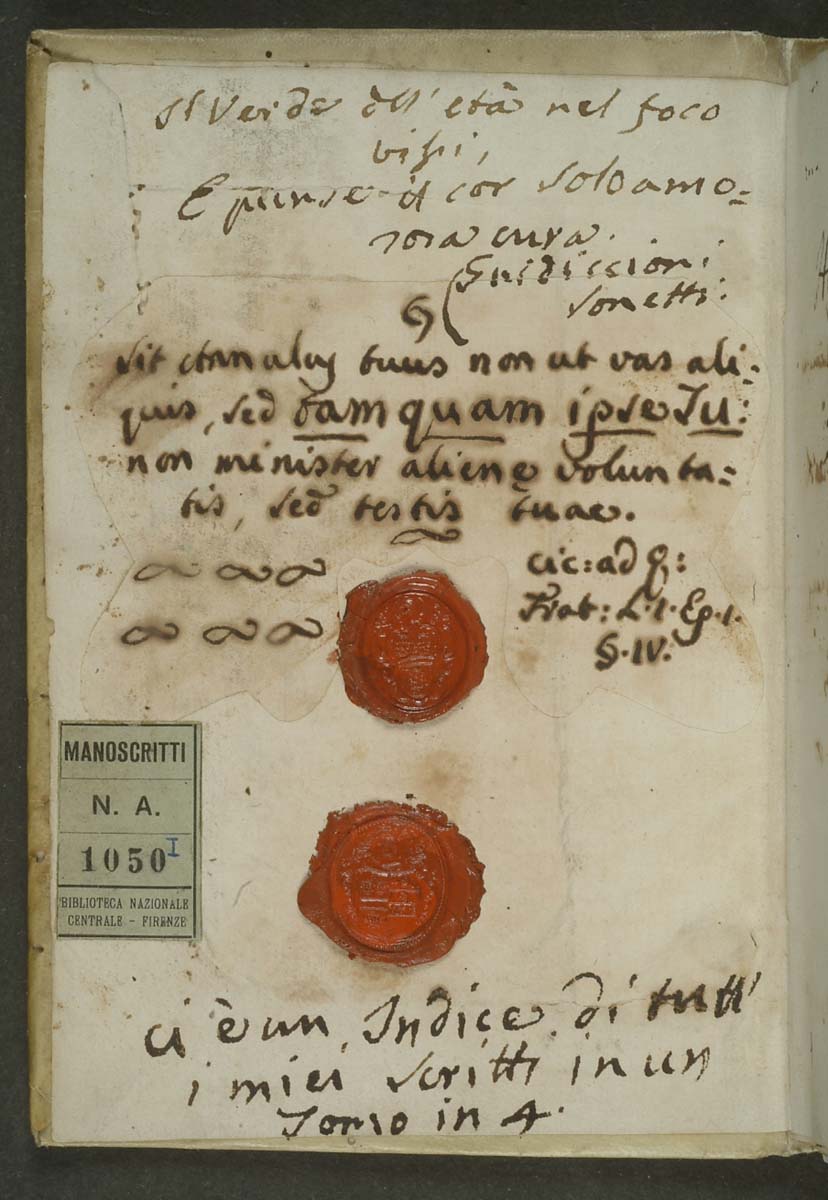 Il Verde dll' età nel foco
vissi,
E punse il cor solo amo=
rosa cura.
Guidiccioni
sonetti.
§
sit annulus tuus non ut vas ali-
quis, sed tamquam ipse Tu:
non minister alienę volunta=
tis, sed testis tuae.
cic: ad Q:
Frat: L.1. Ep.1.
§.IV.
MANOSCRITTI
N. A.
1050 I
BIBLIOTECA NAZIONALE
CENTRALE - FIRENZE
ci è un Indice di tutt'
i miei scritti in un
Tomo in 4.